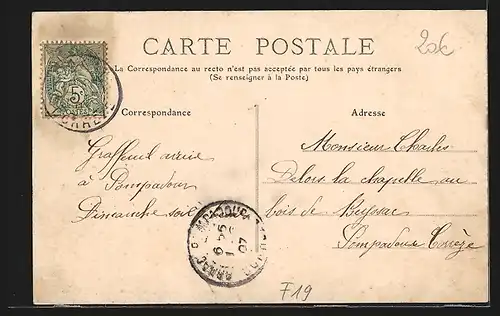 20€
CARTE POSTALE
La Correspondance au recto n'est pas acceptée par tous les pays étrangers
(Se renseigner à la Poste)
Correspondance
Adresse
5
Graffeuil arrive
à Pompadour
Dimanche soir
Monsieur Charles
Delors la chapelle au
bois de Beyssac
Pompadour Corrèze
F19